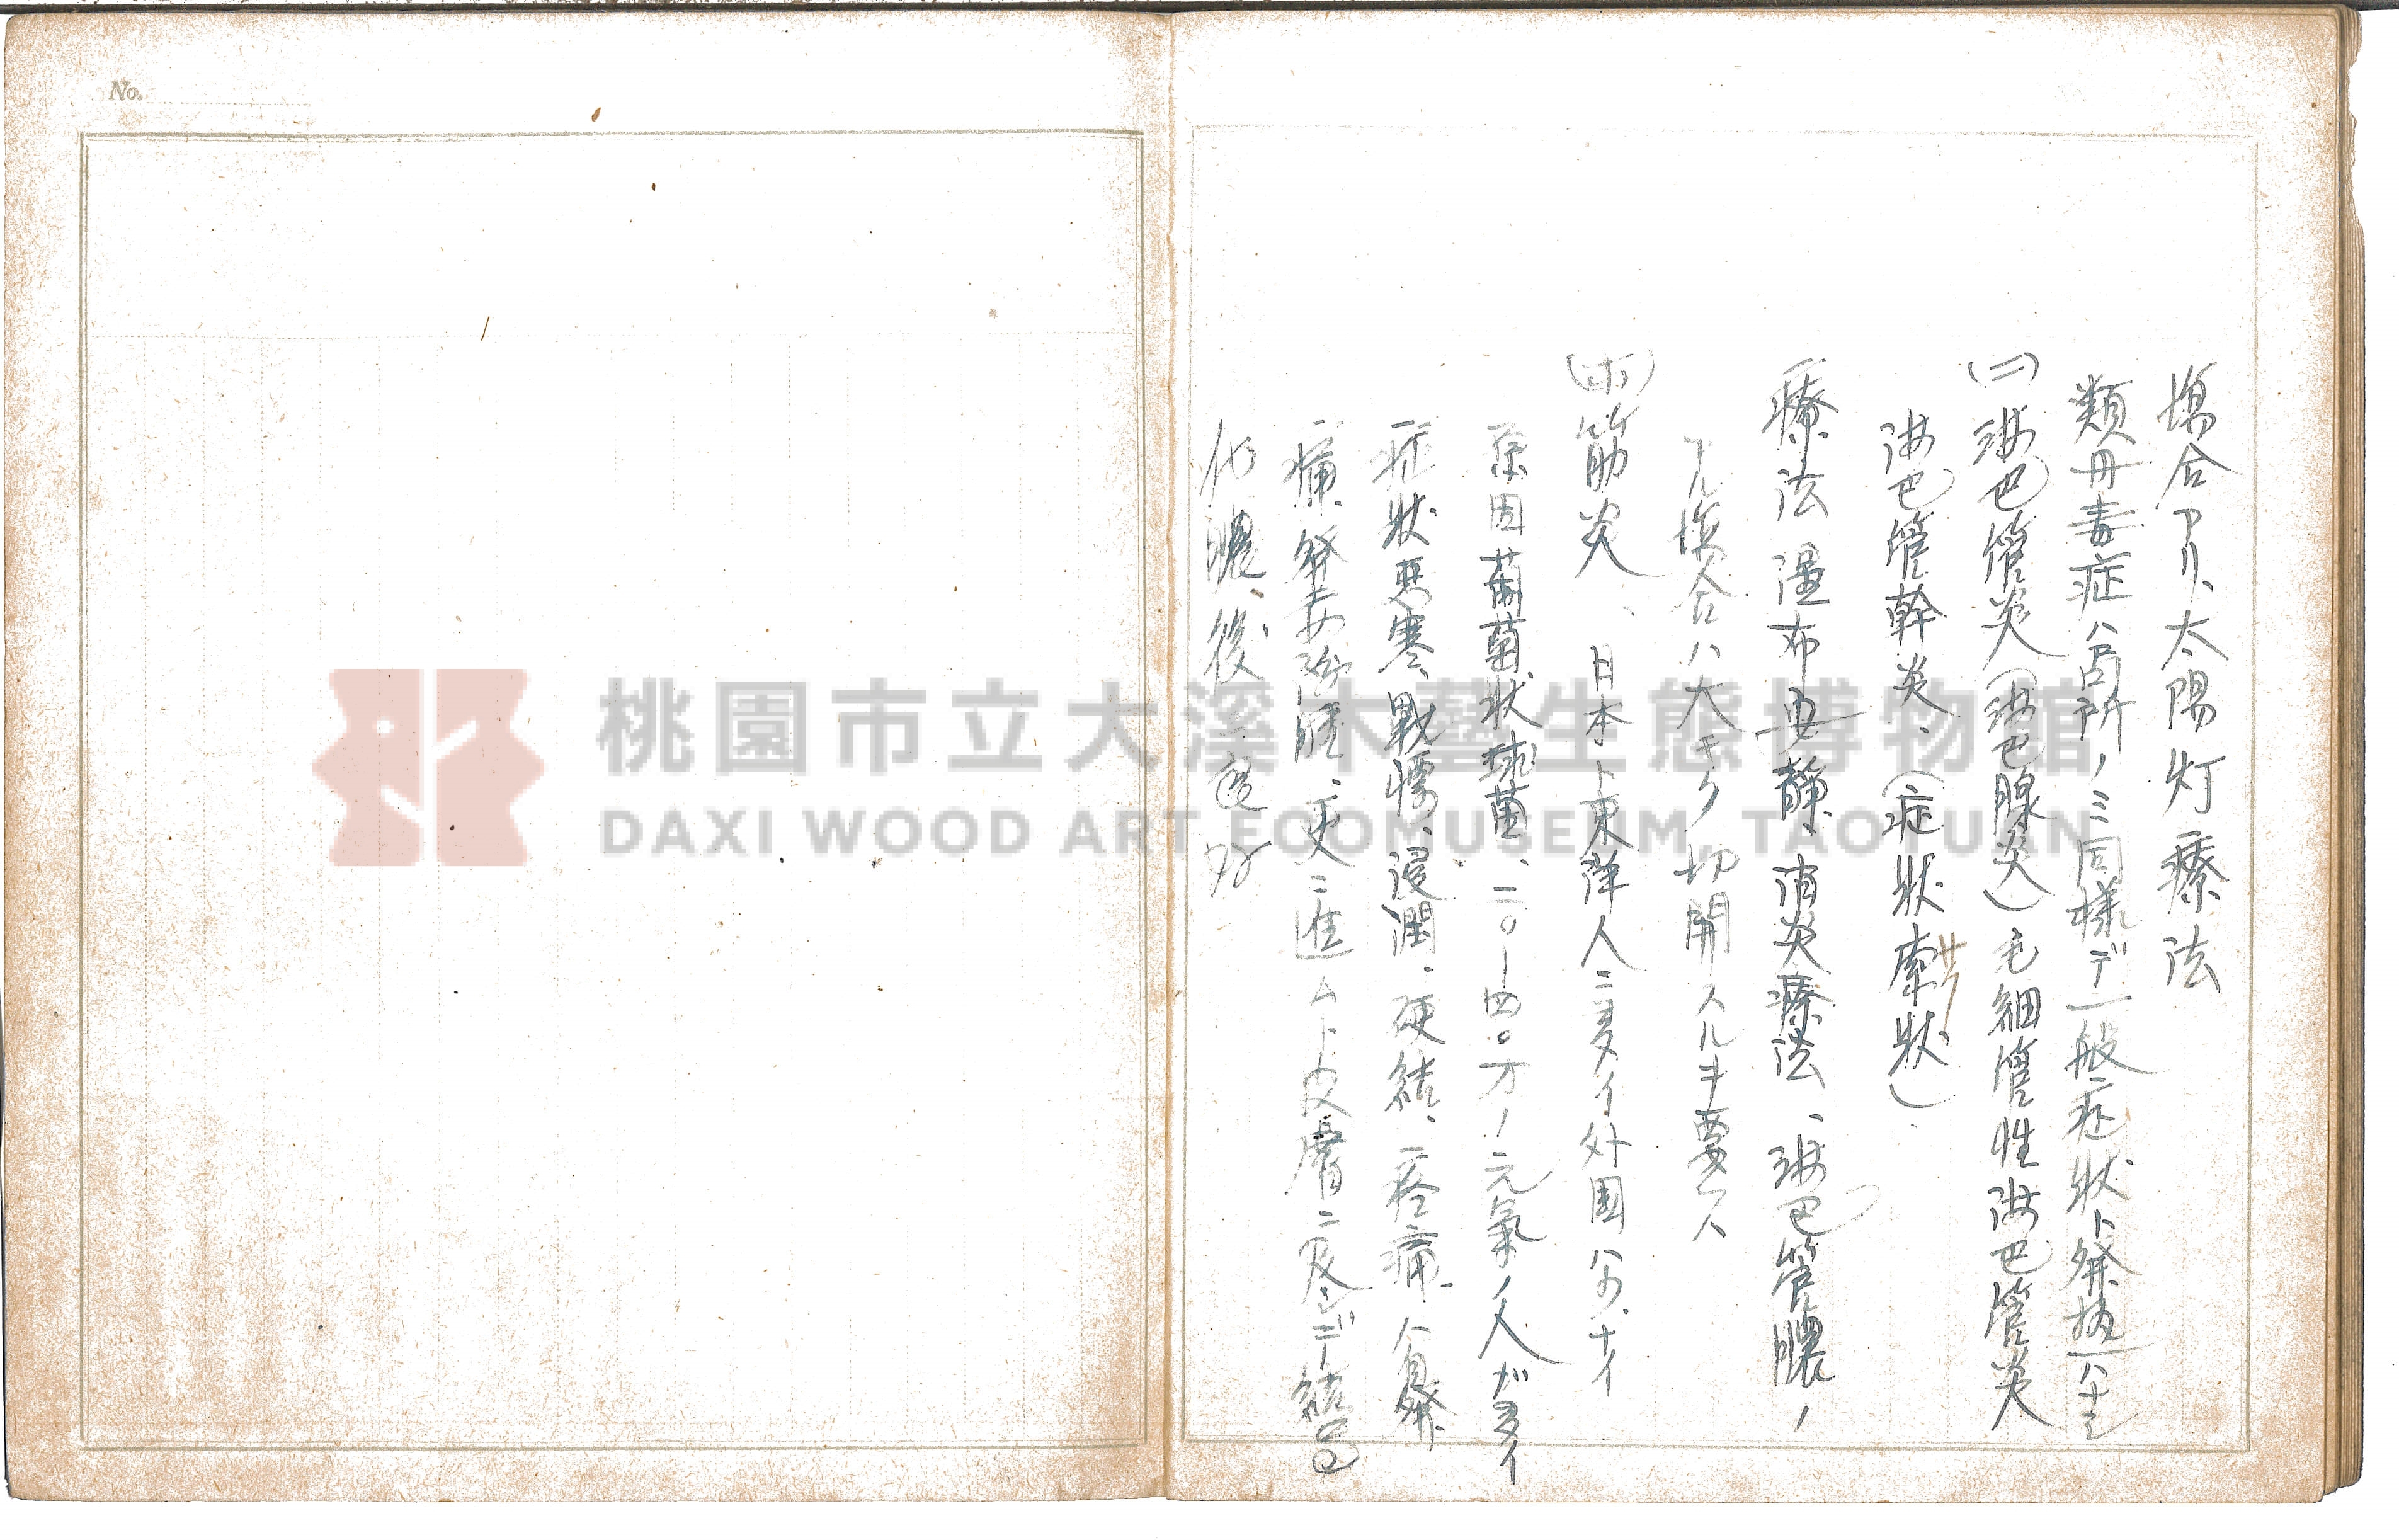 場合アリ、太陽灯療法
類丹毒症ハ局所ノミ同様デ一般症状ト発熱ハナシ
(ニ)淋巴管炎(淋巴腺炎)毛細管性淋巴管炎
淋巴管幹炎、(症状索状)
サク
療法 湿布安静、消炎療法、淋巴管膿ノ
アル場合ハ大キク切開スルヲ要ス
(ホ)筋炎、日本ト東洋人ニ多イ外国ハ少ナイ
原因葡萄状球菌、二〇—四〇才ノ元氣ノ人ガ多イ
症状悪寒、戦慄、浸潤、硬結、疼痛ハ自発
痛、発赤腫脹、更ニ進ムト皮膚ニ及ンデ
化膿後
No.
桃園市立大溪木藝生態博物館
DAXI WOOD ART ECOMUSEUM, TAOYUAN